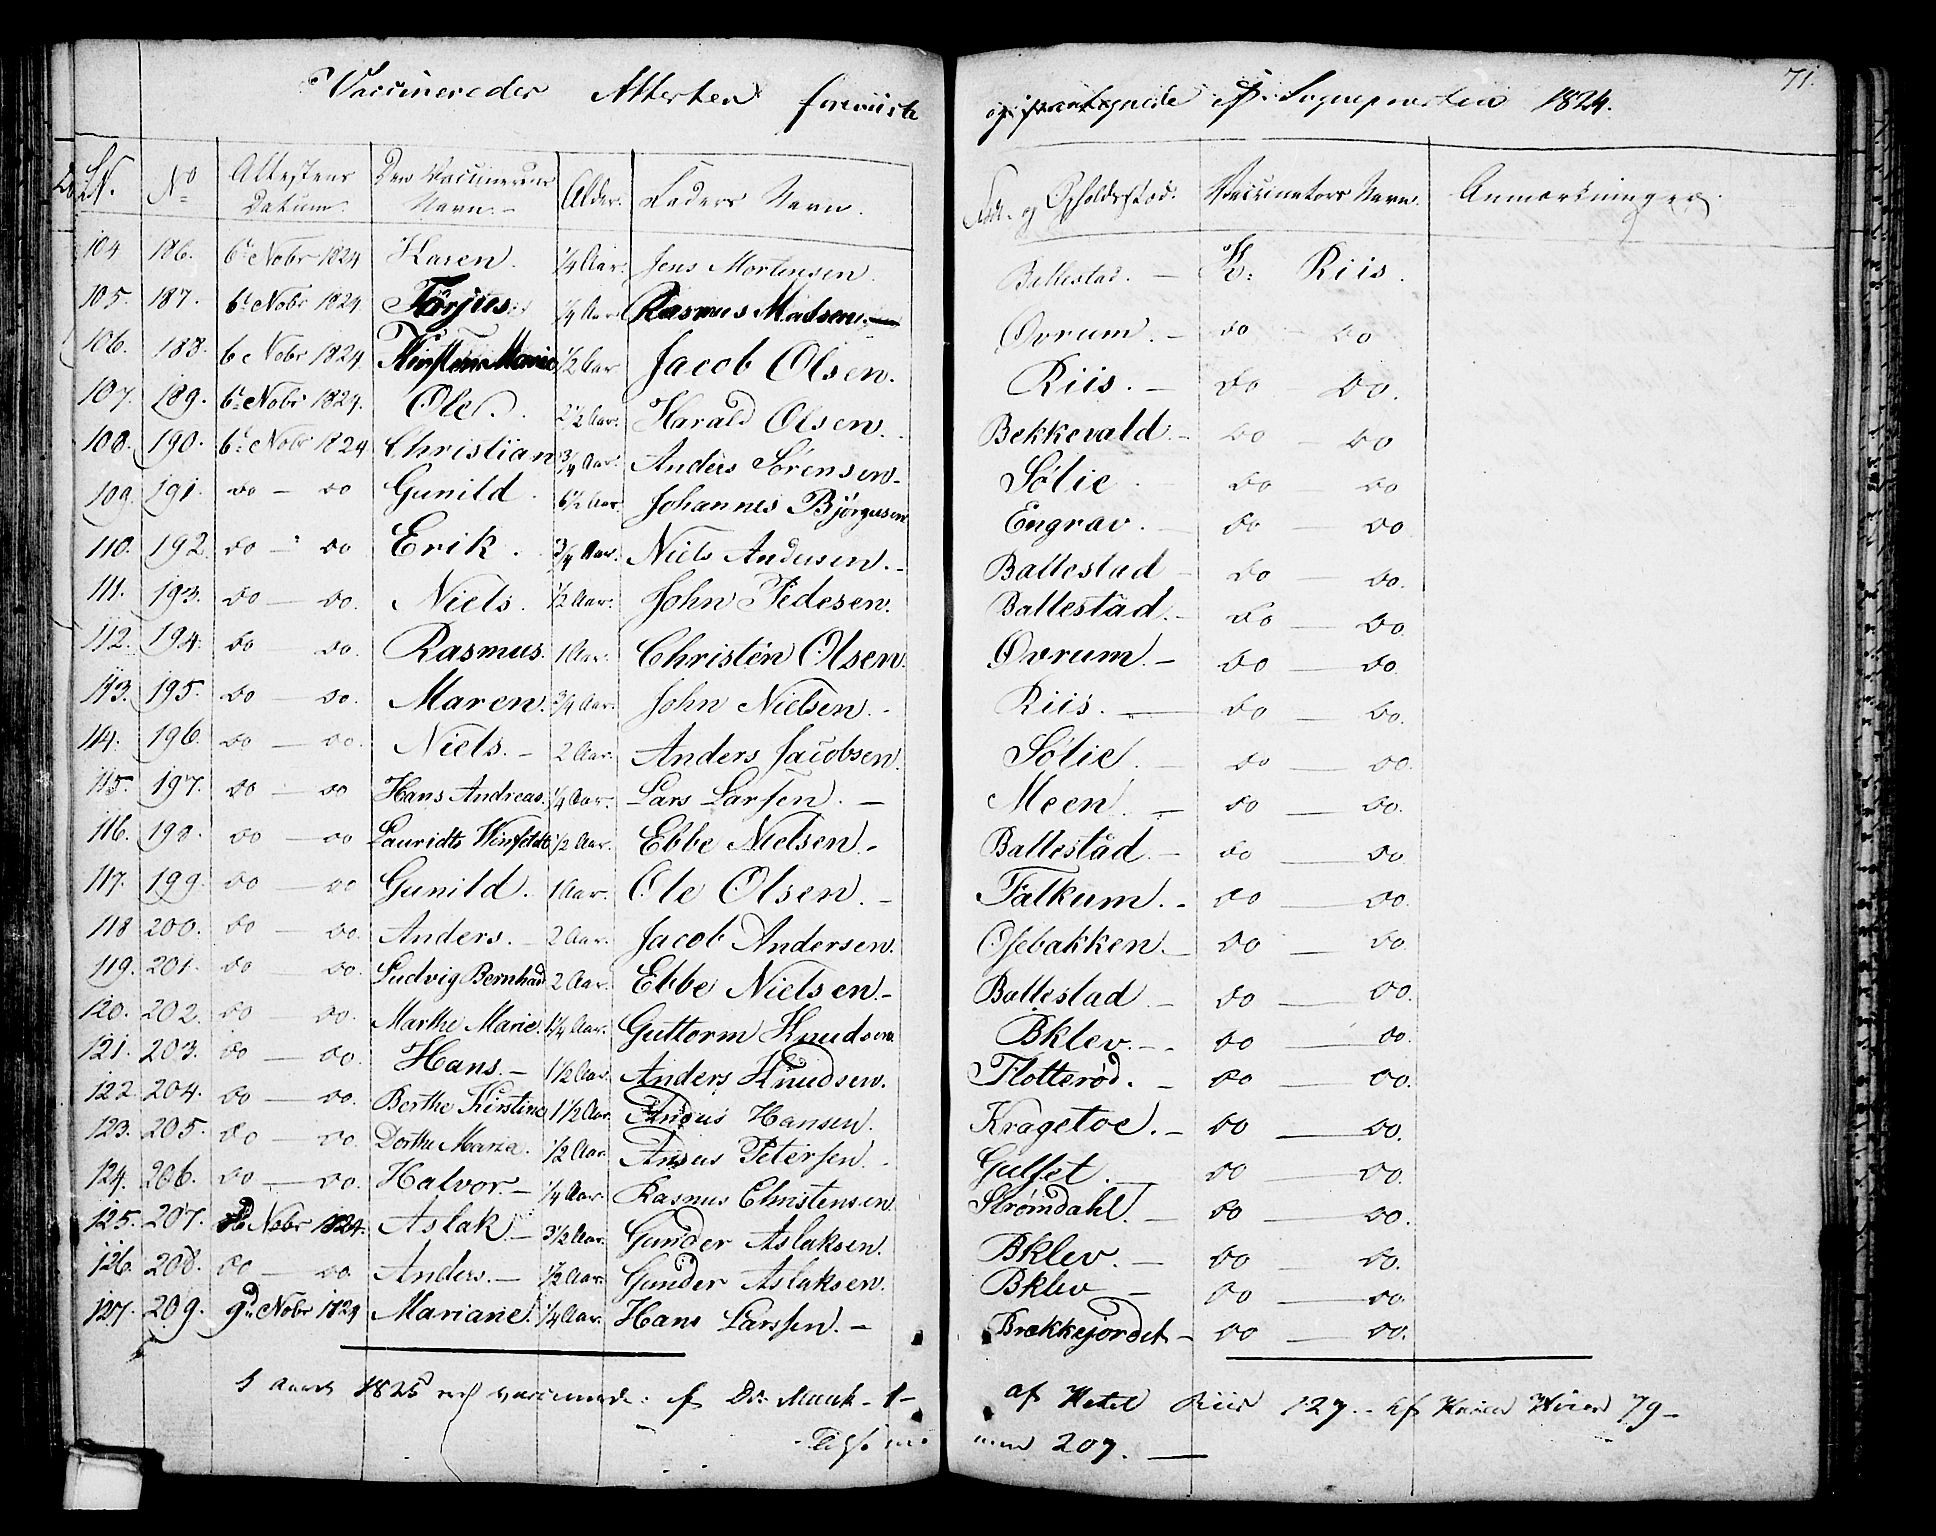 Vaccinereder Attester foreviiste og Sognepræsten 1824. 71.
No Attestens Datum. Den Vaccineredes Navn. Alder. Faders Navn. Føde og Opholdsstæd. Vaccinators Navn. Anmærkninger.
104 186. 6te Nobr 1824 Karen. 1/4 Aar. Jens Mortensen. Ballestad. — K: Riis.
105. 187. 6te Nobr 1824 Torjus. 1/4 Aar Rasmus Madsen. — Øvrum. — do — do
106. 188. 6 Nobr 1824 Kirsten Marie 1/2 Aar Jacob Olsen. Riis. — do — do.
107. 189. 6te Nobr 1824. Ole. 2 1/2 Aar. Harald Olsen. Bekkevald. — do — do
108. 190. 6te Nobr 1824 Christian 3/4 Aar. Anders Sørensen. Sølie. — do do
109. 191. do — do Gunild. 6 1/2 Aar. Johannes Bjørgusen Engrav. — do — do
110. 192 do — do Erik. 3/4 Aar. Niels Andersen. — Ballestad — do — do.
111. 193. do — do. Niels. 1/2 Aar. John Pedersen. Ballestad. — do — do
112. 194. do — do. Rasmus. 1 Aar. Christen Olsen. Øvrum. — do — do
113. 195. do — do. Maren. 3/4 Aar. John Nielsen. — Riis. — do — do.
114. 196. do — do. Niels. — 2 Aar. Anders Jacobsen Sølie. — do — do.
115. 197. do — do Hans Andreas. 1/4 Aar. Lars Larsen. — Meen. — do — do.
116. 198. do — do Lauridts Winfeldt 1/2 Aar. Ebbe Nielsen. — Ballestad. — do — do
117. 199. do — do Gunild. 1 Aar. Ole Olsen. — Falkum. — do — do.
118 200. do — do. Anders. — 2 Aar. Jacob Andersen. Osebakken. — do — do.
119. 201. do — do. Ludvig Bernhad 2 Aar. Ebbe Nielsen. — Ballestad — do — do.
120. 202. do — do. Marthe Marie. 1 1/4 Aar. Guttorm Knudsen. Bklev. — do — do.
121. 203. do — do. Hans. — 1 1/2 Aar. Anders Knudsen. Flotterød. — do — do.
122 204. do — do. Berthe Kirstine 1 1/2 Aar. Hansen. Kragetoe. — do — do.
123. 205. do — do. Dorthe Maria. 1/2 Aar. Petersen. Gulset. — do — do.
124. 206. do — do. Halvor. — 1/4 Aar. Rasmus Christensen Strømdahl. — do — do.
125. 207. Nobr 1824. Aslak — 3 1/2 Aar. Gunder Aslaksen. Bklev. — do — do.
126. 208. do — do. Anders. — 1/2 Aar. Gunder Aslaksen. Bklev — do — do
127. 209. 9de Nobr 1824 Mariane. 1/4 Aar. Hans Larssen. — Brekkejordet — do — do.
I Aaret 1825 vaccinerede: af Dr: Munk — 1 — af Ketel Riis 127. — af 79 —
Tilsammen 207. —